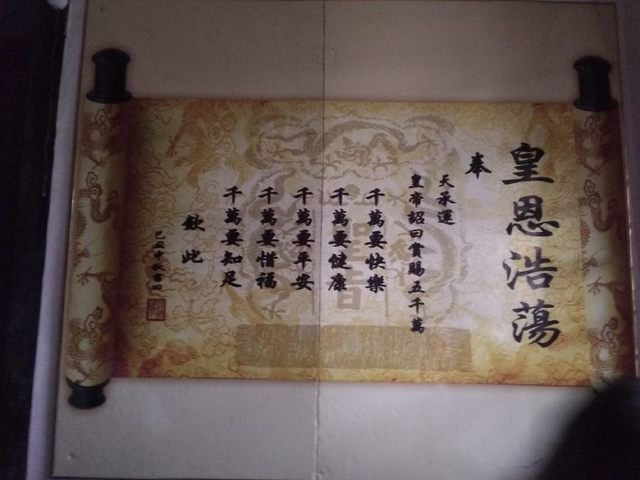 皇恩浩蕩
奉
天承運
皇帝詔曰賞賜五千萬
千萬要快樂
千萬要健康
千萬要平安
千萬要惜福
千萬要知足
欽此
聖旨